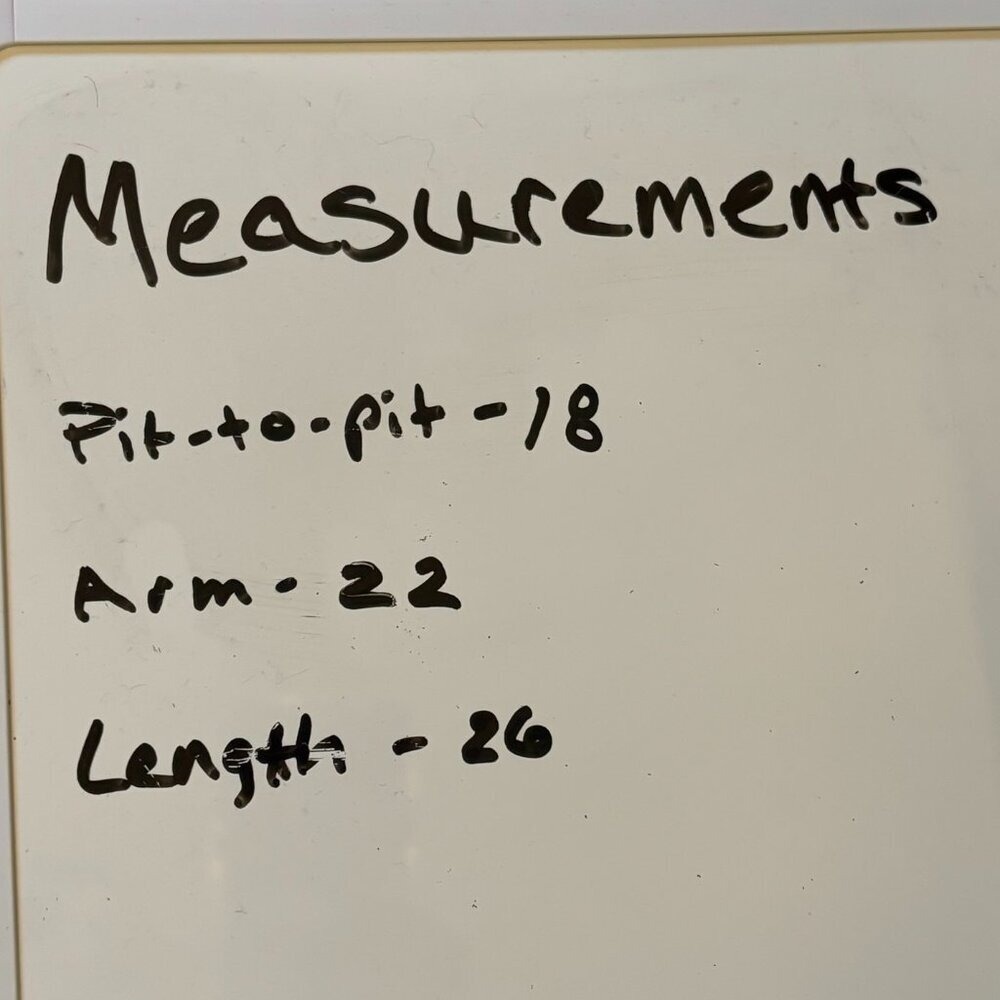 Measurements
Pit-to-pit - 18
Arm - 22
Length - 26